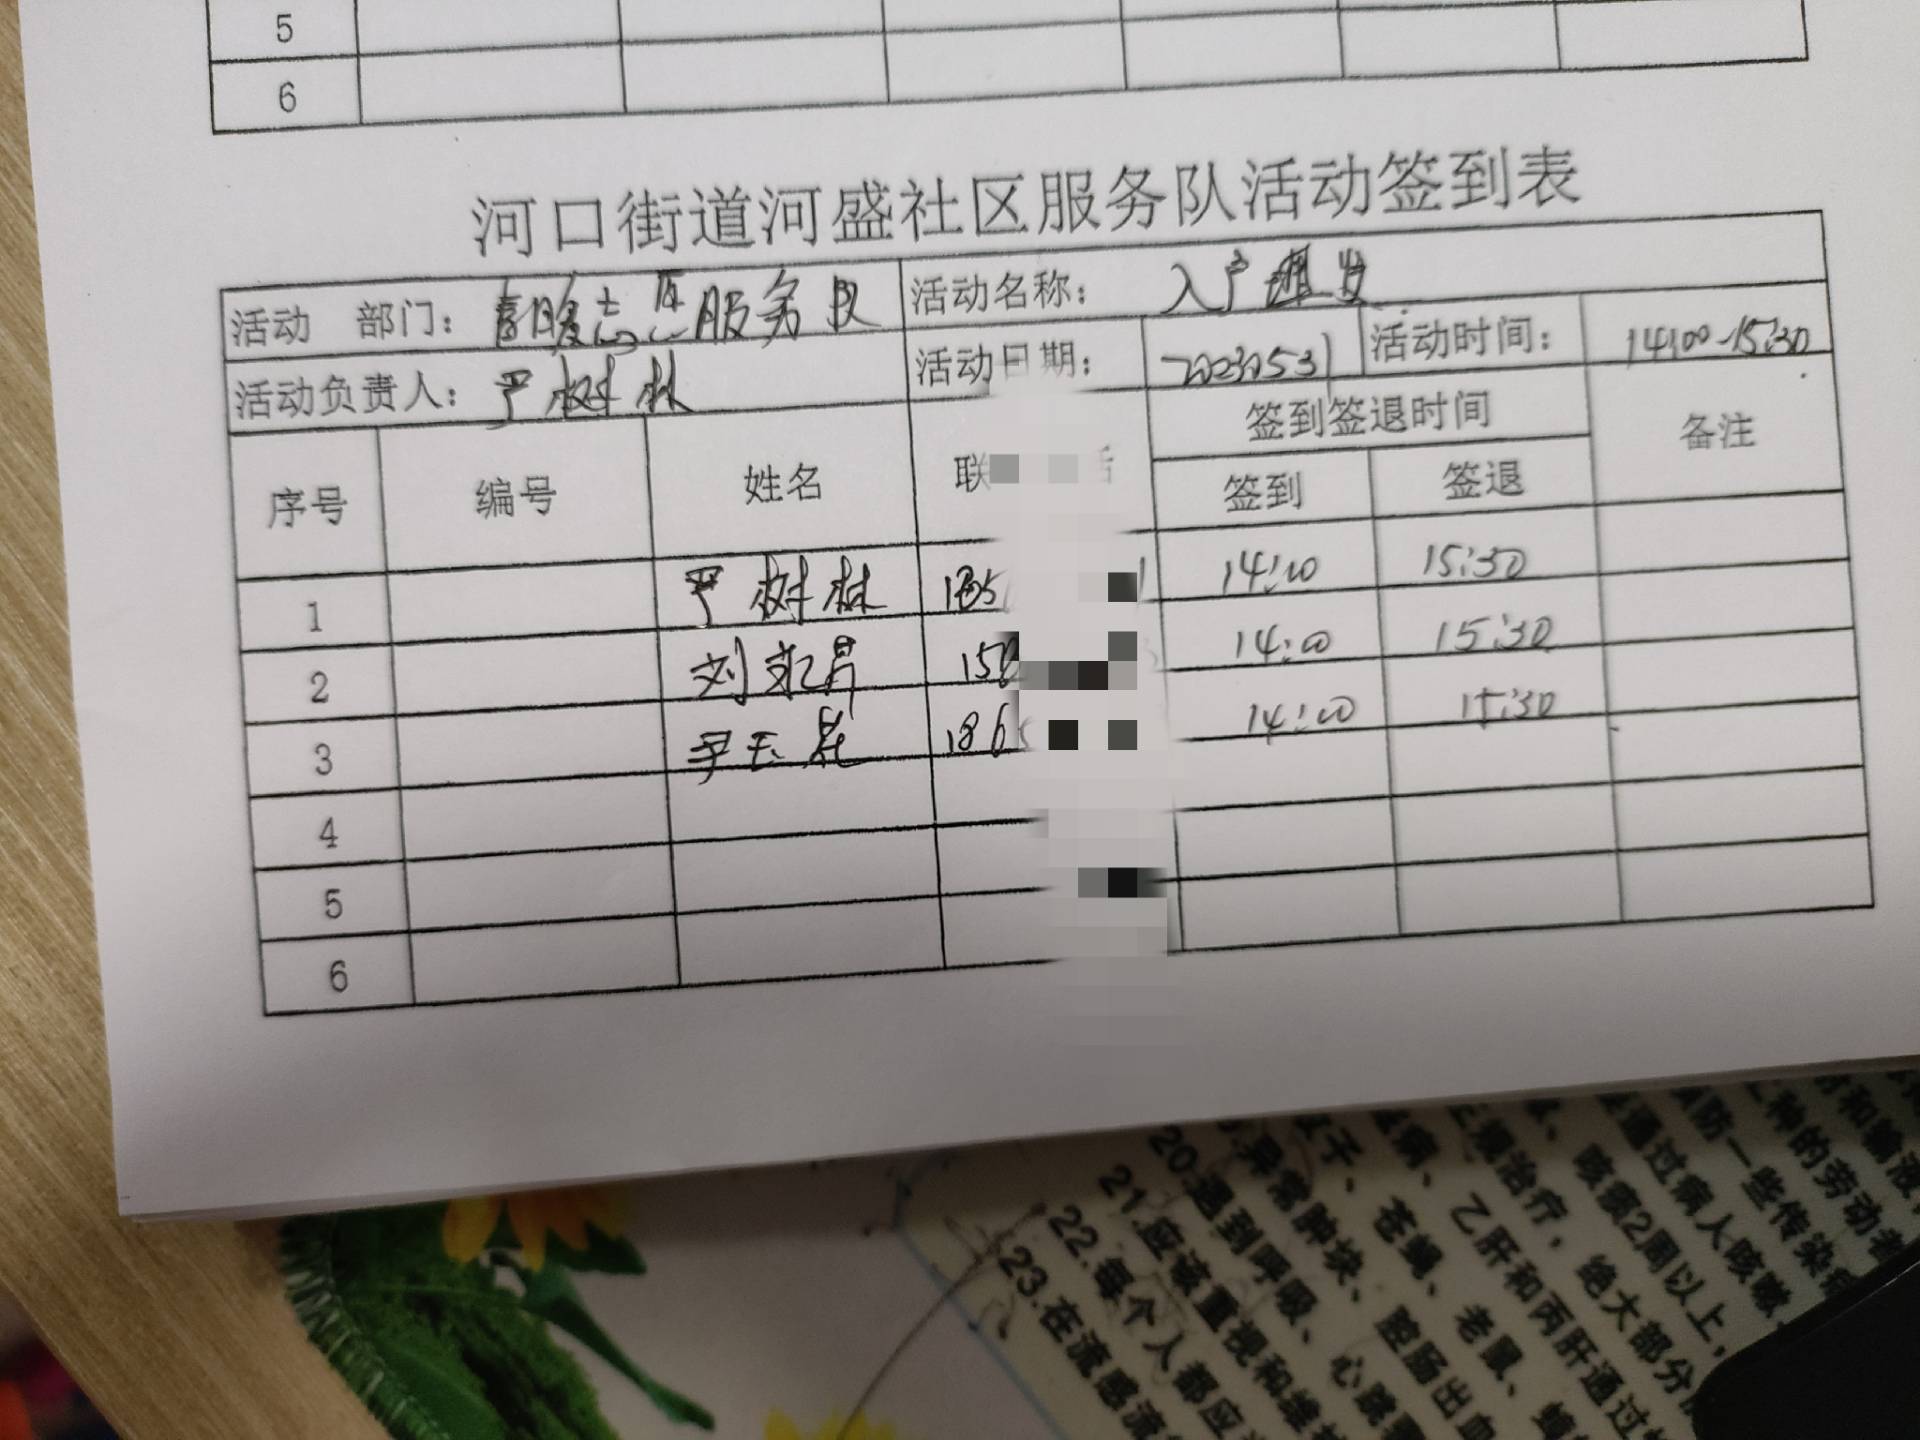 5
6
河口街道河盛社区服务队活动签到表
活动 部门： 春暖志愿服务队 活动名称： 入户理发
活动负责人： 严树林 活动日期： 20230531 活动时间： 14:00-15:30
序号 编号 姓名 联 签到签退时间 备注
签到 签退
1 严树林 14:00 15:30
2 刘 14:00 15:30
3 尹玉花 186 14:00 15:30
4
5
6
20.遇到呼吸、心跳
21.应该重视和维护
22.每个人都应
23.在流感流
异常肿块、腔肠出血
蚊子、苍蝇、老鼠、蟑
乙肝和丙肝通过
治疗，绝大部分
咳痰2周以上，
通过病人咳嗽、
防一些传染病
种的劳动者
和输液